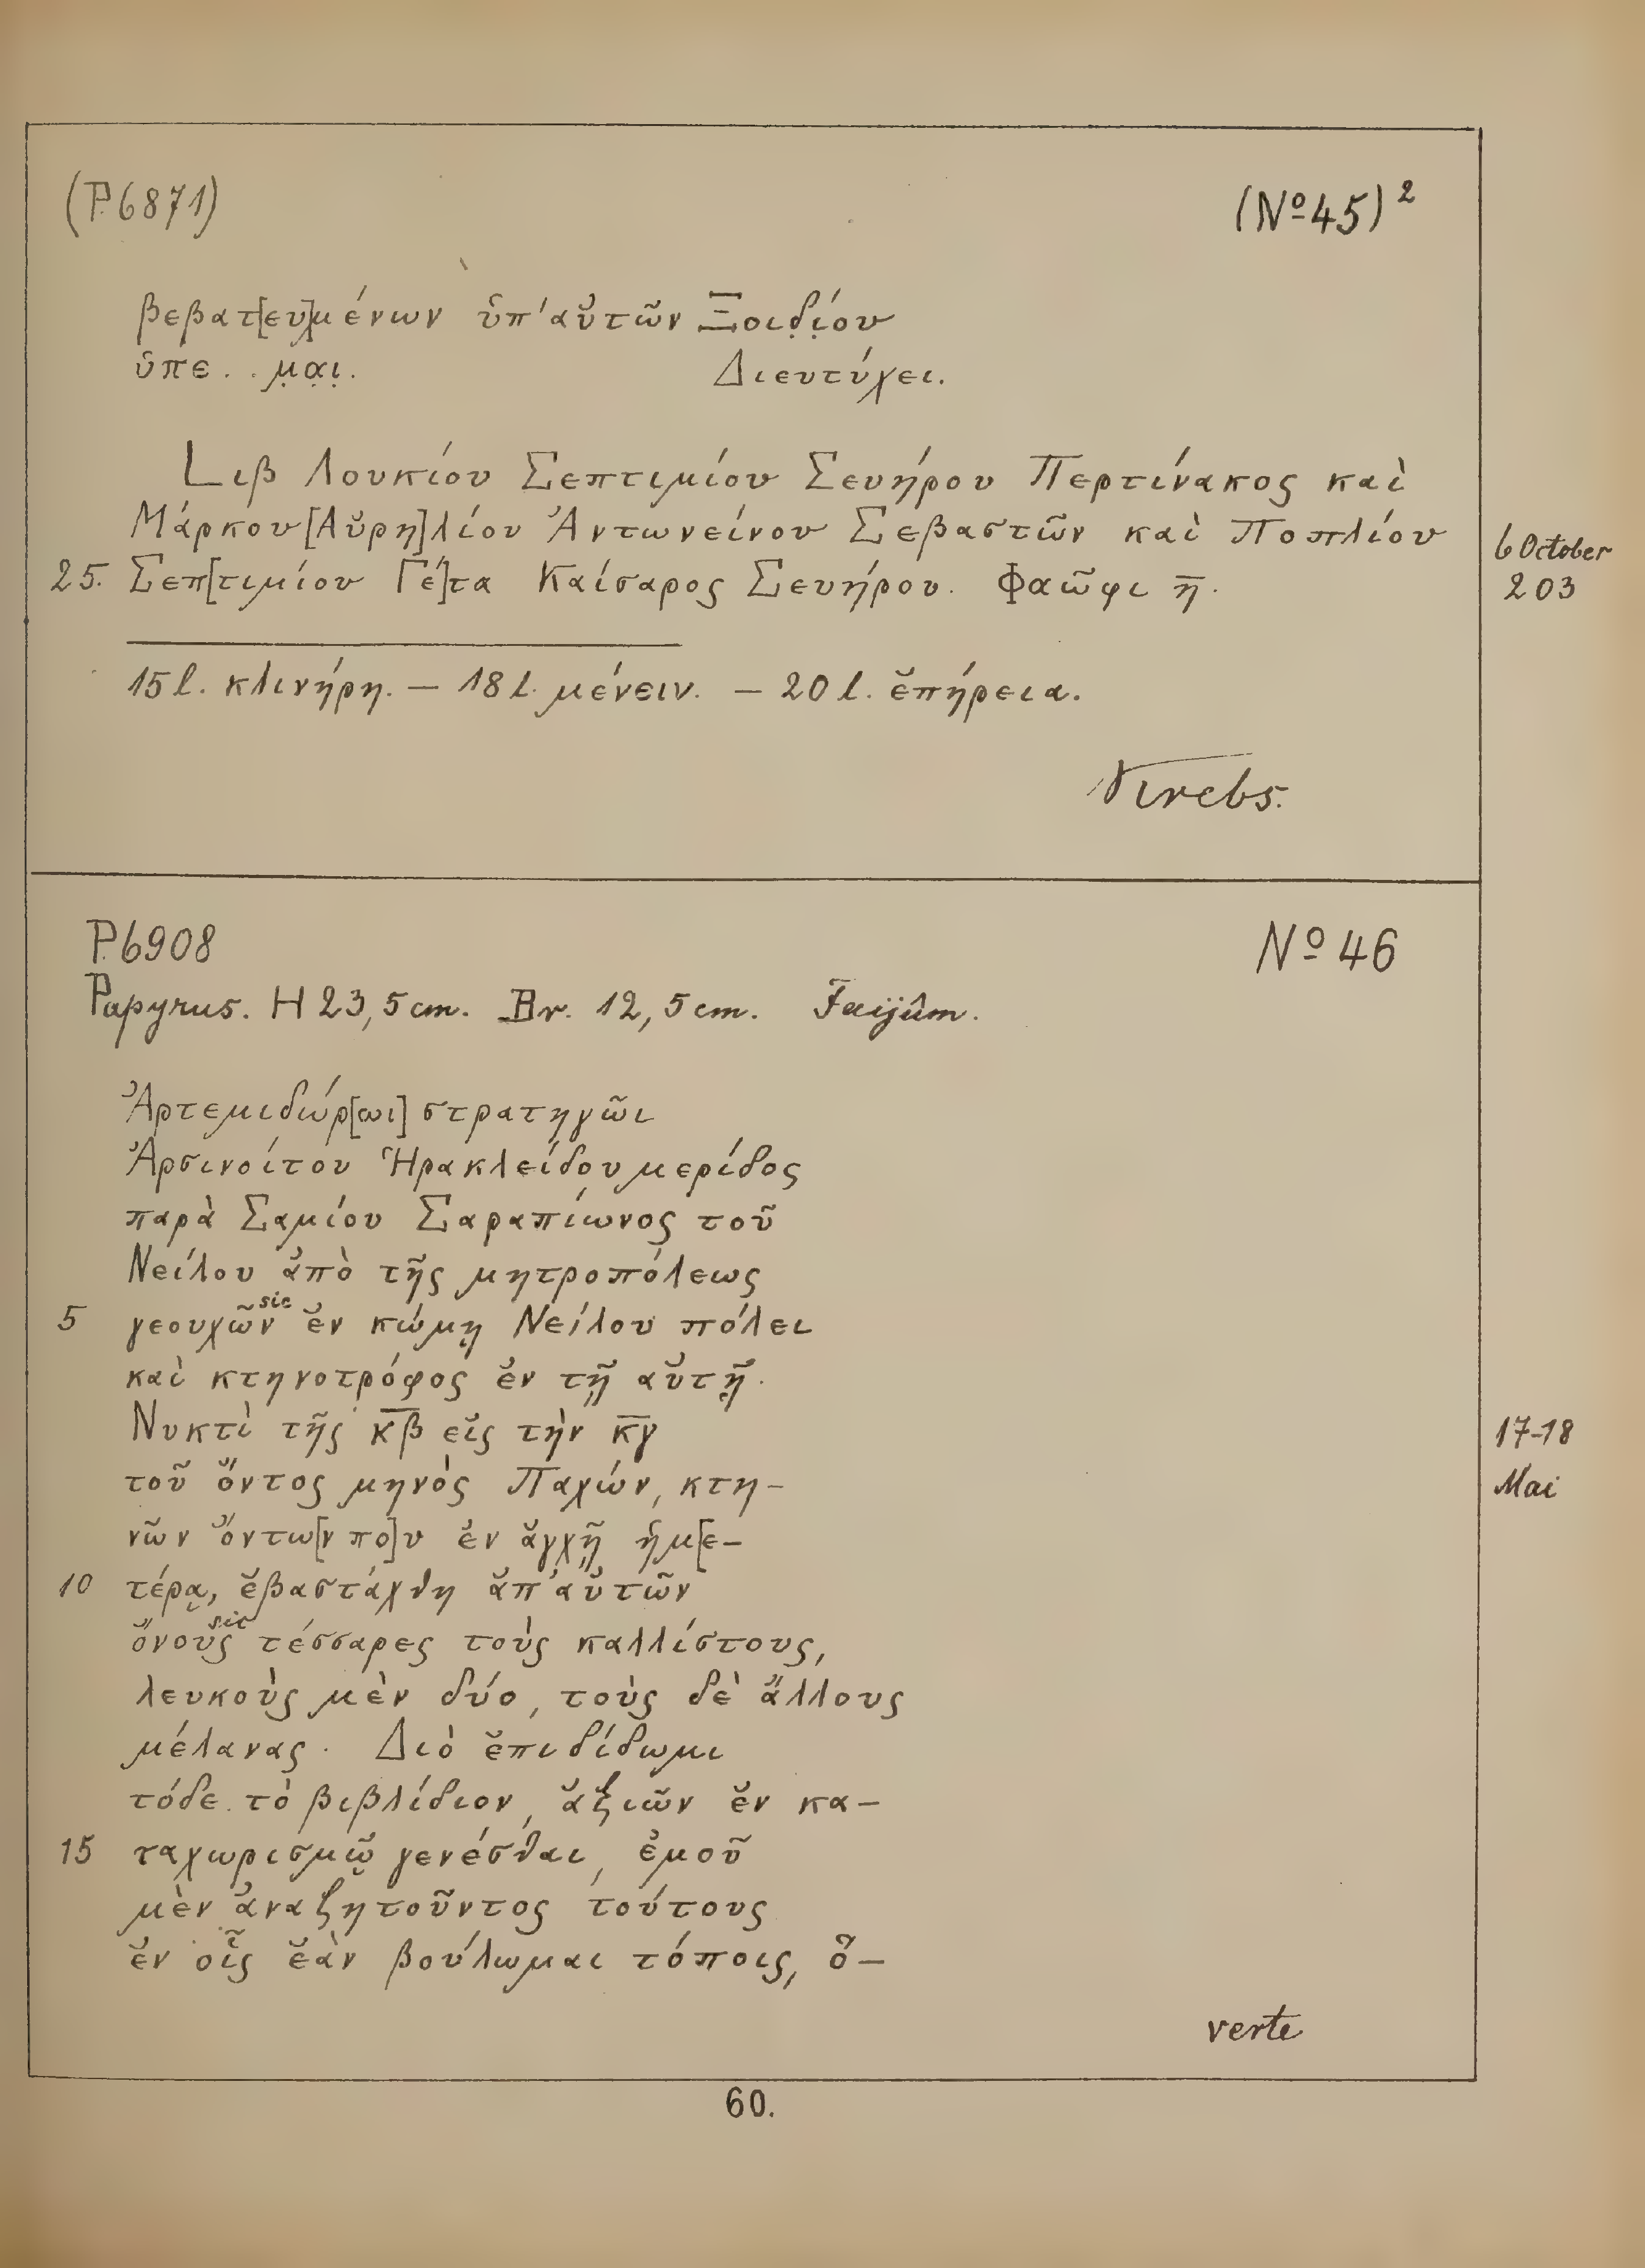 (P.6871) (Nº45)²
βεβατ[ευ]μένων ὑπ' αὐτῶν Ξοιδ̣ί̣ου
ὑπε . . μ̣α̣ι̣. Διευτύχει.
Lιβ Λουκίου Σεπτιμίου Σευήρου Περτίνακος καὶ
Μάρκου [Αὐρη]λίου Ἀντωνείνου Σεβαστῶν καὶ Ποπλίου
6 October
203
25. Σεπ[τιμίου Γέ]τα Καίσαρος Σευήρου. Φαῶφι η̅.
15 l. κλινήρη. — 18 l. μένειν. — 20 l. ἐπήρεια.
Krebs.
P.6908 Nº 46
Papyrus. H 23,5 cm. Br. 12,5 cm. Faijûm.
Ἀρτεμιδώρ[ωι] στρατηγῶι
Ἀρσινοίτου Ἡρακλείδου μερίδος
παρὰ Σαμίου Σαραπίωνος τοῦ
Νείλου ἀπὸ τῆς μητροπόλεως
sic
5 γεουχῶν ἐν κώμῃ Νείλου πόλει
καὶ κτηνοτρόφος ἐν τῇ αὐτῇ.
Νυκτὶ τῆς κ̅β̅ εἰς τὴν κ̅γ̅
17-18
Mai
τοῦ ὄντος μηνὸς Παχών, κτη-
νῶν ὄντω[ν πο]υ ἐν ἀγχῇ ἡμ[ε-
10 τέρᾳ, ἐβαστάχθη ἀπ' αὐτῶν
sic
ὄνους τέσσαρες τοὺς καλλίστους,
λευκοὺς μὲν δύο, τοὺς δὲ ἄλλους
μέλανας. Διὸ ἐπιδίδωμι
τόδε τὸ βιβλίδιον, ἀξιῶν ἐν κα-
15 ταχωρισμῷ γενέσθαι, ἐμοῦ
μὲν ἀναζητοῦντος τούτους
ἐν οἷς ἐὰν βούλωμαι τόποις, ὅ-
verte
60.